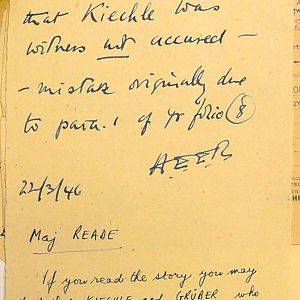 that Kiechle was
witness not accused –
– mistake originally due
to para. 1 of yr folio (8)
AEER
22/3/46
Maj READE
If you read the story you may
KIECHLE and GRÜBER who